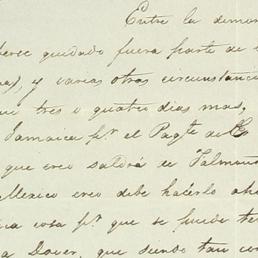 Entre la demor
erse quedado fuera parte de
), y varias otras circunstanci
tres o quatro dias mas.
Jamaica pr. el Paqte. de
que creo saldrá de Falmout
Mexico creo debe hacerlo aho
cosa pr. que se puede te
a Dover, que siendo tan co